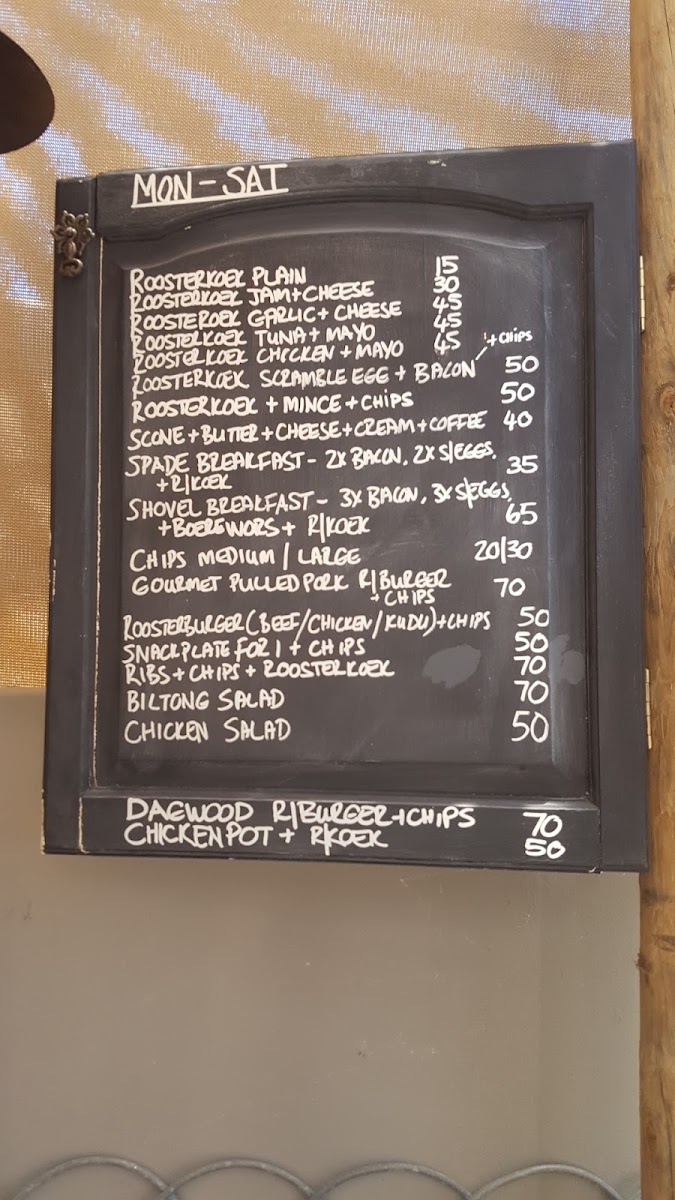 MON-SAT
ROOSTERKOEK PLAIN 15
ROOSTERKOEK JAM+CHEESE 30
ROOSTEROEK GARLIC+CHEESE 45
ROOSTERKOEK TUNA+MAYO 45
ROOSTERKOEK CHICKEN+MAYO 45
+CHIPS
ROOSTERKOEK SCRAMBLE EGG + BACON 50
ROOSTERKOEK + MINCE + CHIPS 50
SCONE+BUTTER+CHEESE+CREAM+COFFEE 40
SPADE BREAKFAST - 2X BACON, 2X S/EGGS, 35
+R/KOEK
SHOVEL BREAKFAST - 3X BACON, 3X S/EGGS,
+BOEREWORS + R/KOEK 65
CHIPS MEDIUM / LARGE 20/30
GOURMET PULLED PORK R/BURGER 70
+ CHIPS
ROOSTERBURGER(BEEF/CHICKEN/KUDU)+CHIPS 50
SNACKPLATE FOR 1 + CHIPS 50
RIBS + CHIPS + ROOSTERKOEK 70
BILTONG SALAD 70
CHICKEN SALAD 50
DAGWOOD R/BURGER+CHIPS 70
CHICKEN POT + R/KOEK 50